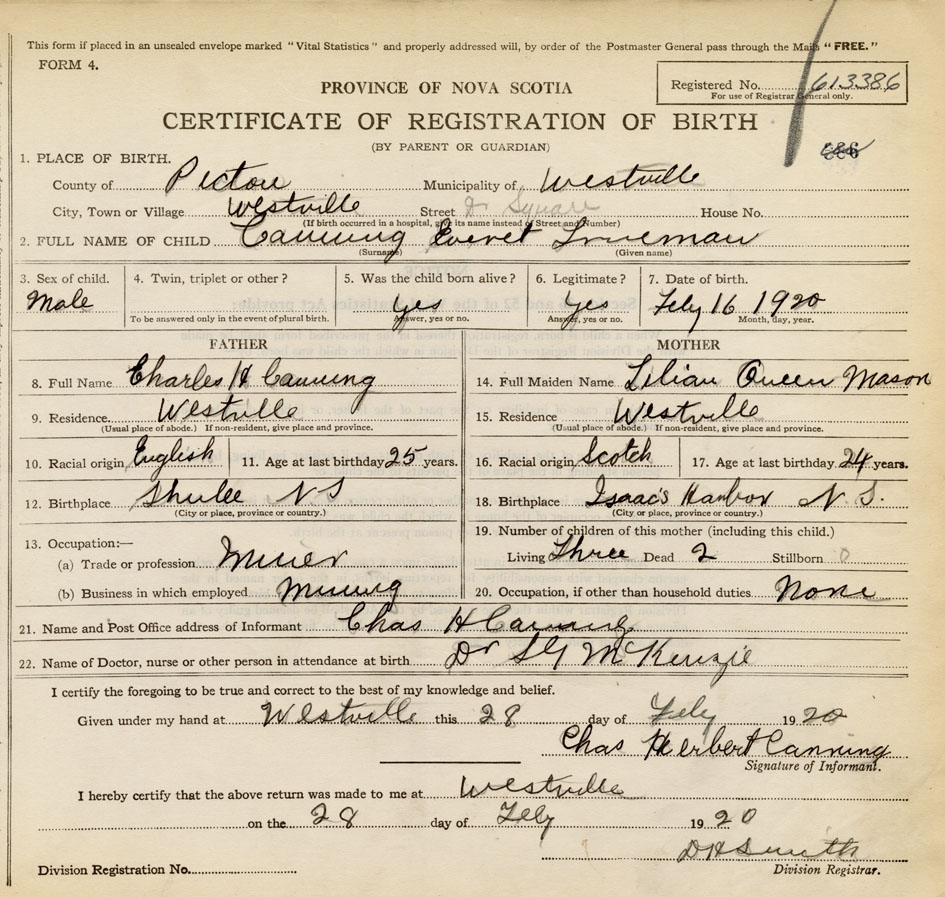 This form if placed in an unsealed envelope marked "Vital Statistics" and properly addressed will, by order of the Postmaster General pass through the Mails "FREE."
FORM 4.
Registered No. 613386
For use of Registrar General only.
PROVINCE OF NOVA SCOTIA
CERTIFICATE OF REGISTRATION OF BIRTH
(BY PARENT OR GUARDIAN)
1. PLACE OF BIRTH.
County of Pictou Municipality of Westville
City, Town or Village Westville Street Dr Square House No.
(If birth occurred in a hospital, give its name instead of Street and Number)
2. FULL NAME OF CHILD Canning Everet Trueman
(Surname) (Given name)
3. Sex of child. 4. Twin, triplet or other? 5. Was the child born alive? 6. Legitimate? 7. Date of birth.
Male Yes Yes Feby 16 1920
To be answered only in the event of plural birth. Answer, yes or no. Answer, yes or no. Month, day, year.
FATHER MOTHER
8. Full Name Charles H Canning 14. Full Maiden Name Lilian Queen Mason
9. Residence. Westville 15. Residence Westville
(Usual place of abode.) If non-resident, give place and province. (Usual place of abode.) If non-resident, give place and province.
10. Racial origin English 11. Age at last birthday 25 years. 16. Racial origin Scotch 17. Age at last birthday 24 years.
12. Birthplace Shulee N S 18. Birthplace Isaac's Harbor N. S.
(City or place, province or country.) (City or place, province or country.)
13. Occupation:— 19. Number of children of this mother (including this child.)
(a) Trade or profession Miner Living Three Dead 2 Stillborn 0
(b) Business in which employed Mining 20. Occupation, if other than household duties. None
21. Name and Post Office address of Informant Chas H Canning
22. Name of Doctor, nurse or other person in attendance at birth Dr S G McKenzie
I certify the foregoing to be true and correct to the best of my knowledge and belief.
Given under my hand at Westville this 28 day of Feby 1920
Chas Herbert Canning
Signature of Informant.
I hereby certify that the above return was made to me at Westville
on the 28 day of Feby 1920
D H Smith
Division Registration No. Division Registrar.